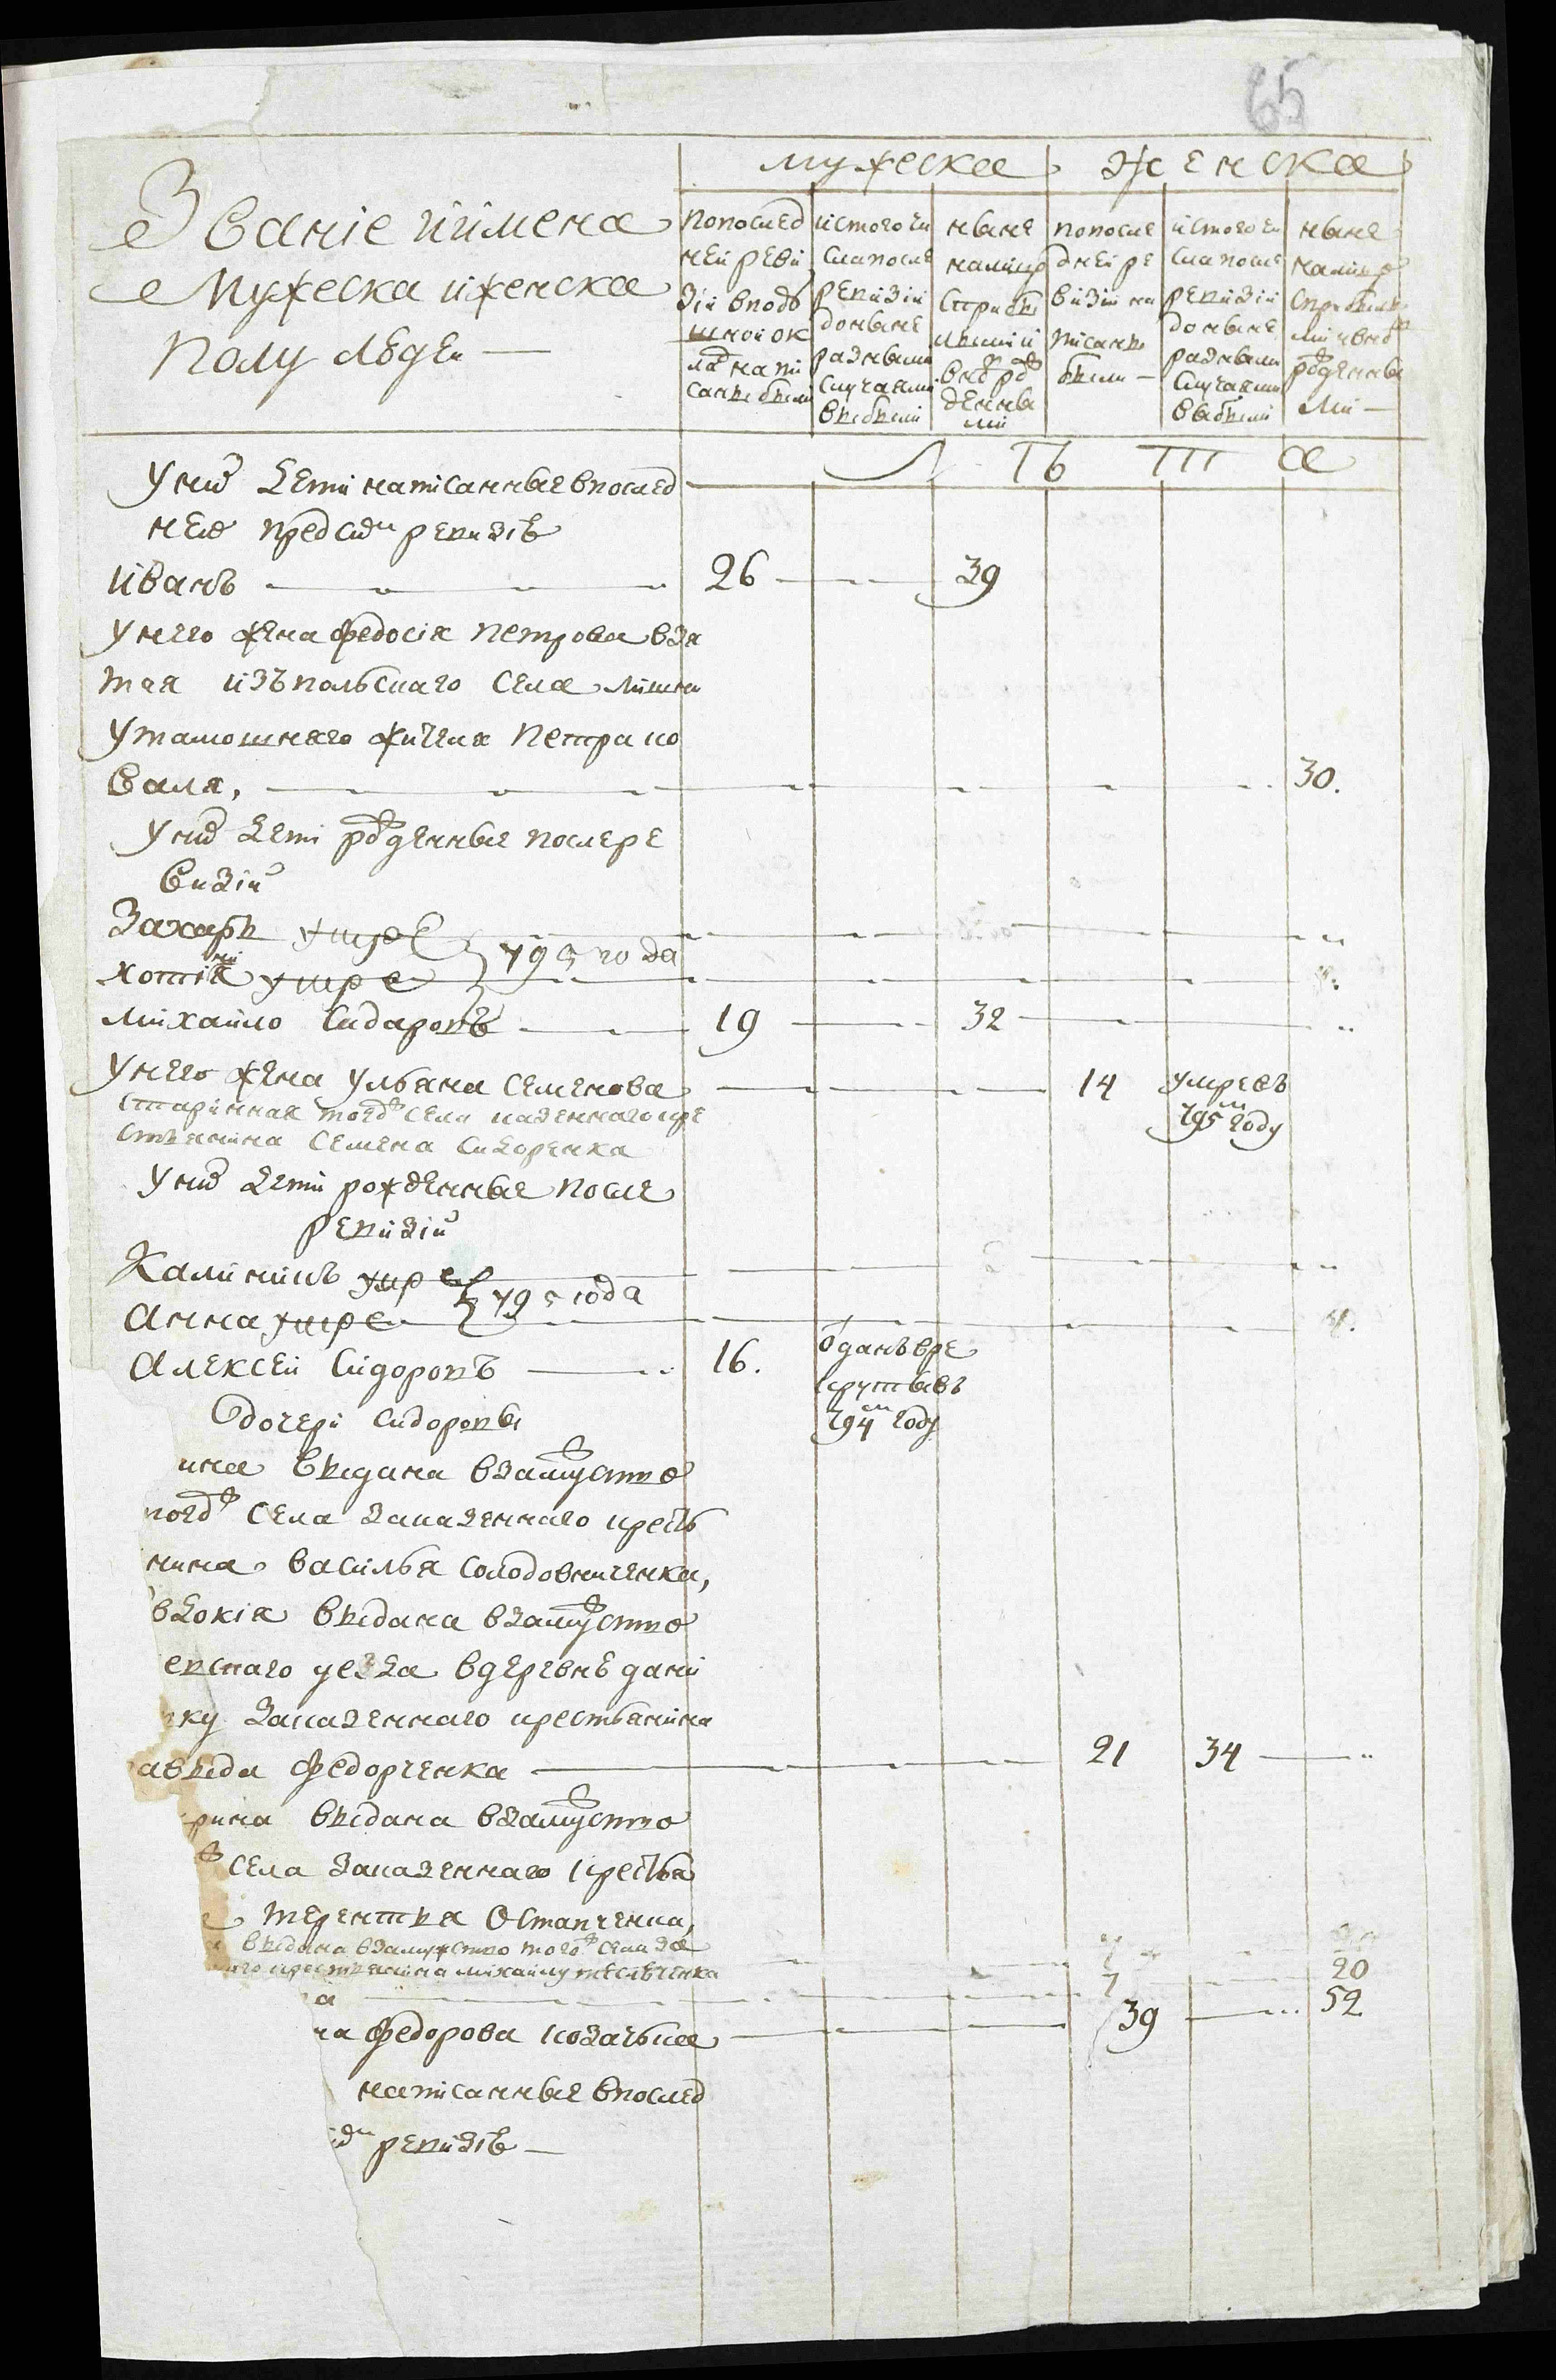 65
Званіе иімена
Мужеска иженска
полу людеи —
мужеска
женска
попослед
неи реви
зіи вподу
шнои ок
ладъ напи
саны были
истого чи
сла после
ревизіи
доныне
разными
случаями
выбыли
ныне
налицо
с прибы
лыми и
вновь рож
денны
ми
попосле
днеи ре
визіи на
писаны
были —
истого чи
сла после
ревизіи
доныне
разными
случаями
выбыли
ныне
налицо
с прибылы
ми и вновь
рожденны
ми —
Л Ъ Т а
У них дети написанные впослед
нею пред сим ревизіѣ
иванъ 26 39
у него жена федосія петрова взя
тая изъ польскаго села
у тамошняго жителя петра ко
валя, 30.
у них дети рожденные после ре
визіи
Захаръ умре 795 года
хотіна умре
михаило Сидаровъ 19 32
у него жена ульяна семенова 14 умре въ
старинная тогож села казеннаго кре 795м году
стьянина семена сидоренка
у них дети рожденные после
ревизіи
Калининъ умре 795 года
анна умре
алексеи Сидоровъ 16. отданъ в ре
круты въ
794м году
дочери сидоровы
ина выдана взамужство
тогож села заказеннаго кресть
нина василья солодовниченка,
вдокія выдана взамужство
евскаго уезда вдеревнѣ дани
вку заказеннаго крестьянина
авыда федорченка 21 34
рина выдана взамужство
ж села заказеннаго крестья
терентья Остапченка,
выдана взамужство тогож села за
ного крестьянина михаилу
а 7 20
на федорова козачька 39 52
написанные впослед
сим ревизіѣ —